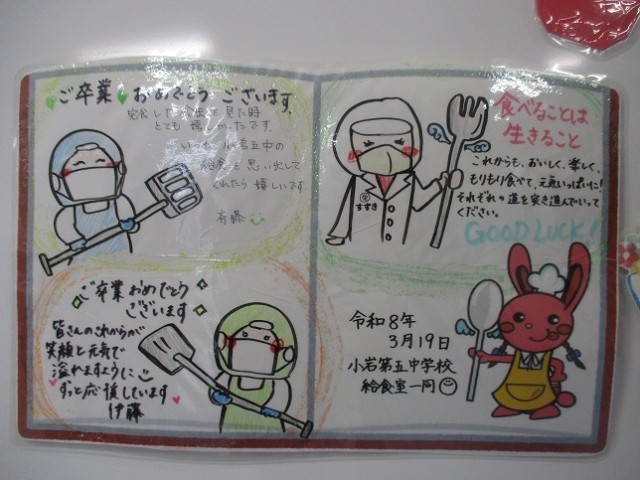 ご卒業おめでとうございます。
完食した食缶を見た時
とても嬉しかったです。
いつか小岩五中の
給食を思い出して
くれたら嬉しいです
斉藤
ご卒業おめでとう
ございます
皆さんのこれからが
笑顔と元気で
溢れますように
ずっと応援しています
伊藤
すずき
食べることは
生きること
これからも、おいしく、楽しく、
もりもり食べて、元気いっぱいに!
それぞれの道を突き進んでいって
ください。
GOOD LUCK!
令和8年
3月19日
小岩第五中学校
給食室一同